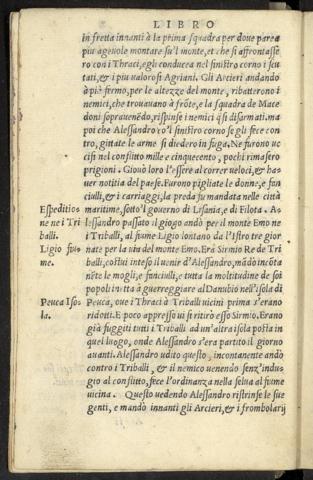 LIBRO
in fretta innanti à la prima squadra per doue parea
piu ageuole montare su'l monte, et che si affrontasse
ro con i Thraci, egli conducea nel sinistro corno i scu
tati, & i piu valorosi Agriani. Gli Arcieri andando
à piè fermo, per le altezze del monte, ributterono i
nemici, che trouauano à frōte, e la squadra de Mace
doni soprauenēdo, rispinse i nemici q̄si disarmati. ma
poi che Alessandro co'l sinistro corno se gli fece con
tro, gittate le arme si diedero in fuga. Ne furono uc
cisi nel conflitto mille e cinquecento, pochi rimasero
prigioni. Giouò loro l'essere al correr veloci, et ha
uer notitia del paese. Furono pigliate le donne, e fan
ciulli, & i carriaggi, la preda fu mandata nelle città
Espeditio maritime, sotto'l gouerno di Lisania, e di Filota. A=
ne ne i Tri lessandro passato il giogo andò per il monte Emo ne
balli. i Triballi, al fiume Ligio lontano da l'Istro tre gior
Ligio fiu= nate per la via del monte Emo. Era Sirmio Re de Tri
me. balli, costui inteso il uenir d'Alessandro, mādò incōta
nēte le mogli, e fanciulli, e tutta la moltitudine de soi
popoli in tutta à guerreggiare al Danubio nell'isola di
Peuca Iso= Peuca, oue i Thraci à Triballi uicini prima s'erano
la. ridotti. E poco appresso ui si ritirò esso Sirmio. Erano
già fuggiti tutti i Triballi ad un'altra isola posta in
quel luogo, onde Alessandro s'era partito il giorno
auanti. Alessandro udito questo, incontanente andò
contro i Triballi, & il nemico uenendo senz'indu=
gio al conflitto, fece l'ordinanza nella selua al fiume
uicina. Questo uedendo Alessandro ristrinse le sue
genti, e mandò innanti gli Arcieri, & i frombolarij